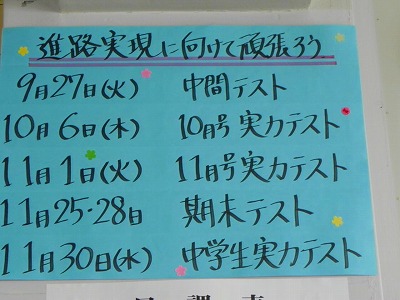 進路実現に向けて頑張ろう
9月27日(火) 中間テスト
10月6日(木) 10月号実力テスト
11月1日(火) 11月号実力テスト
11月25-28日 期末テスト
11月30日(水) 中学生実力テスト